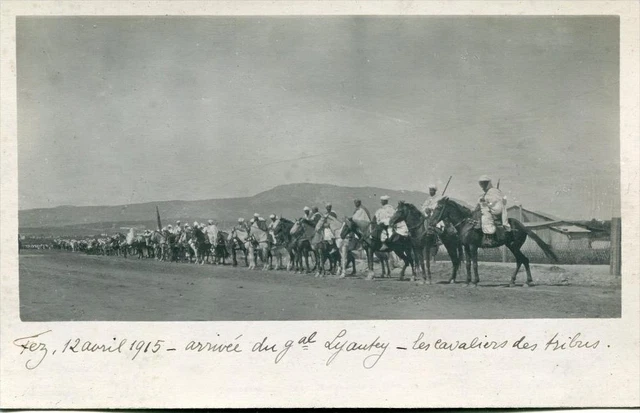 Fez, 12 avril 1915 - arrivée du gal Lyautey - les cavaliers des tribus.